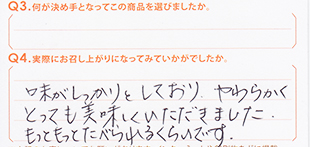 Q3.何が決め手となってこの商品を選びましたか。
Q4.実際にお召し上がりになってみていかがでしたか。
味がしっかりとしており、やわらかく
とっても美味しくいただきました.
もっともっとたべられるくらいです.